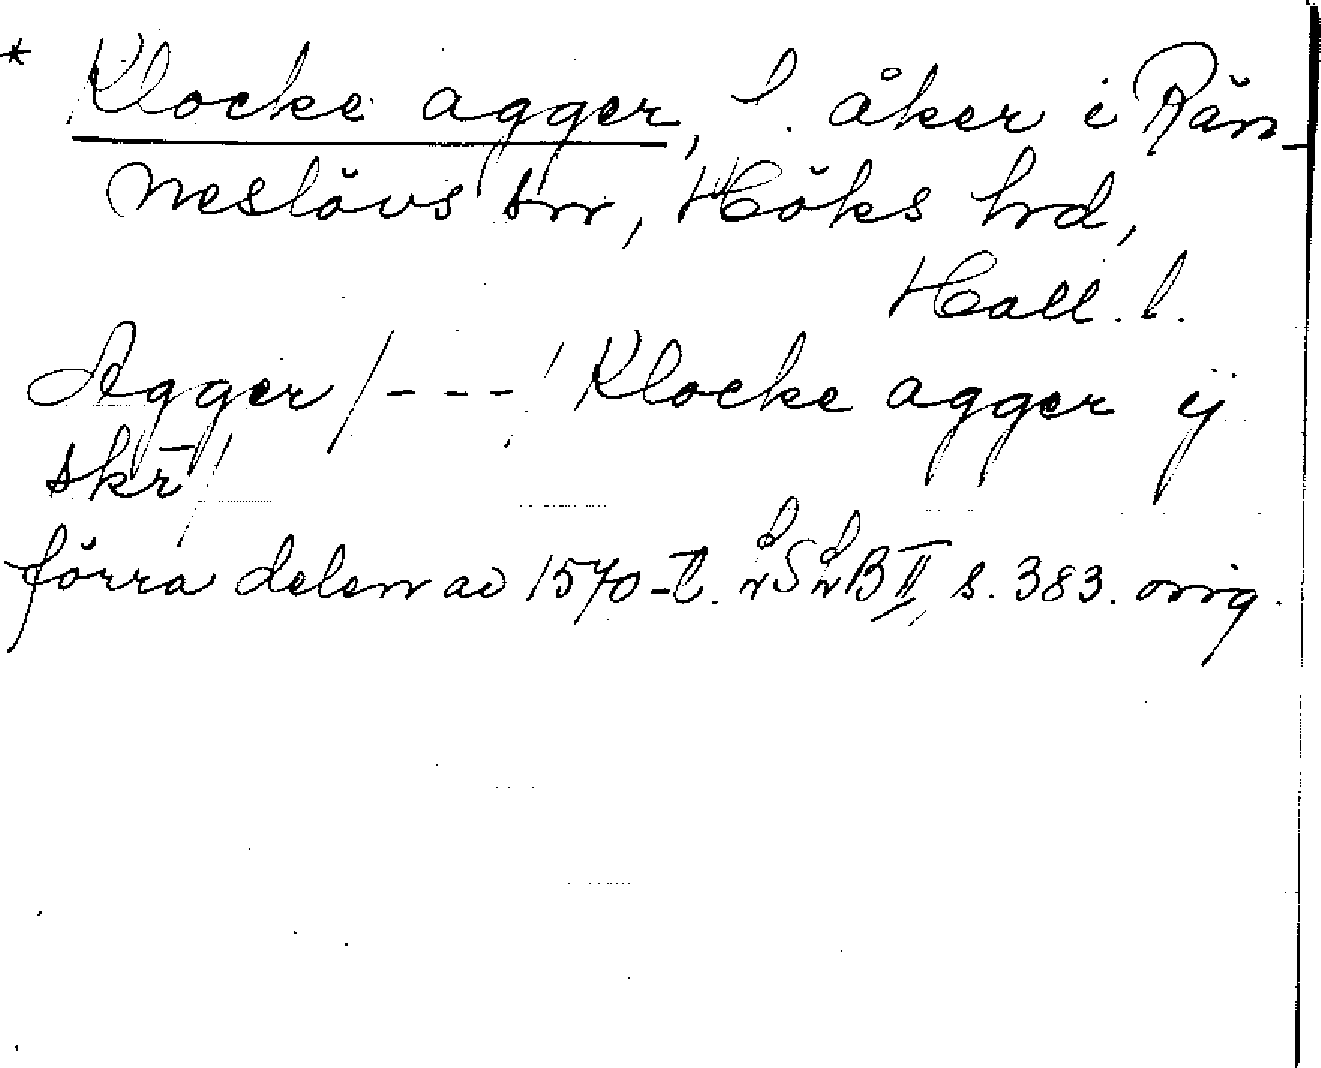 * Klocke agger, l. åker i Rän-
neslövs sn, Höks hrd,
Hall. l.
Agger / - - - / Klocke agger ij
skr̄ /
förra delen av 1570-t. LSLB II, s. 383. orig.